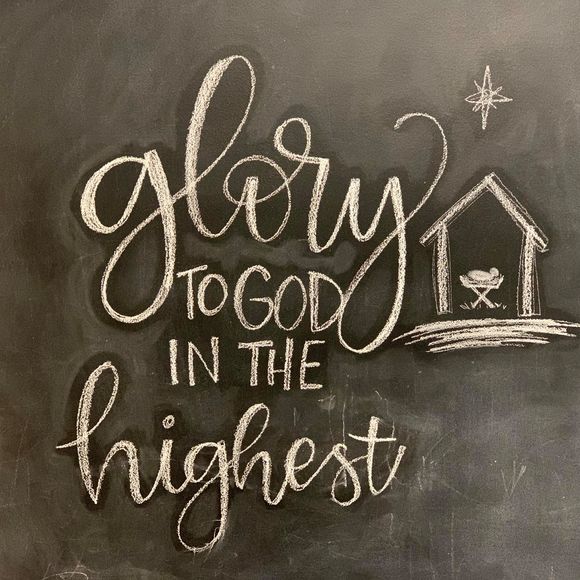 glory
TO GOD
IN THE
highest